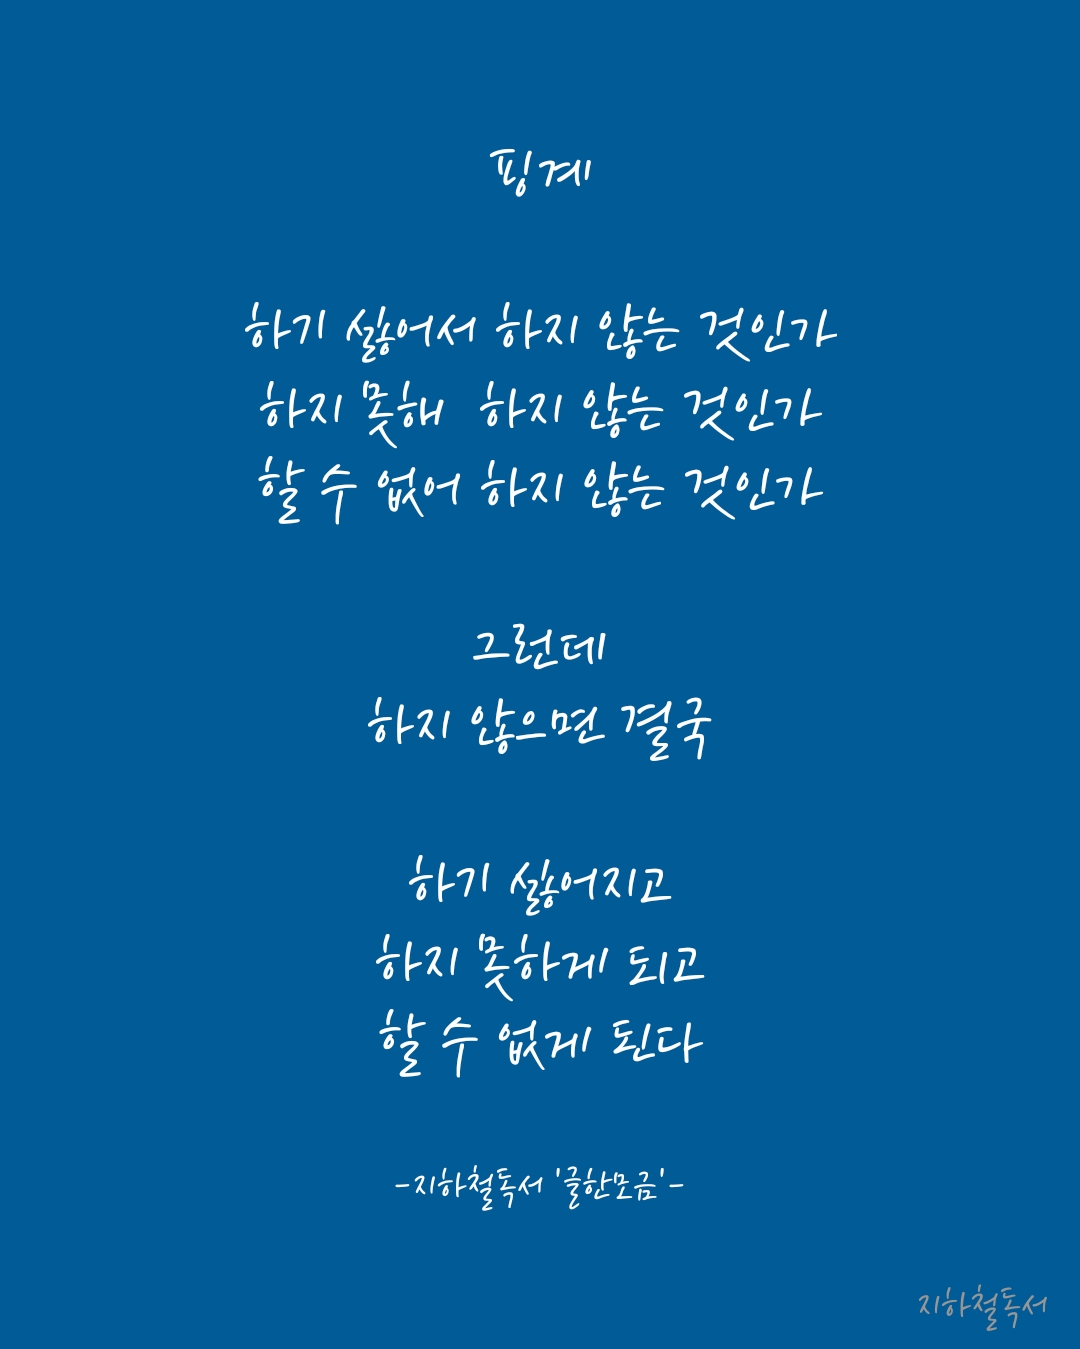 핑계
하기 싫어서 하지 않는 것인가
하지 못해  하지 않는 것인가
할 수 없어 하지 않는 것인가
그런데
하지 않으면 결국
하기 싫어지고
하지 못하게 되고
할 수 없게 된다
-지하철독서 '글한모금'-
지하철독서